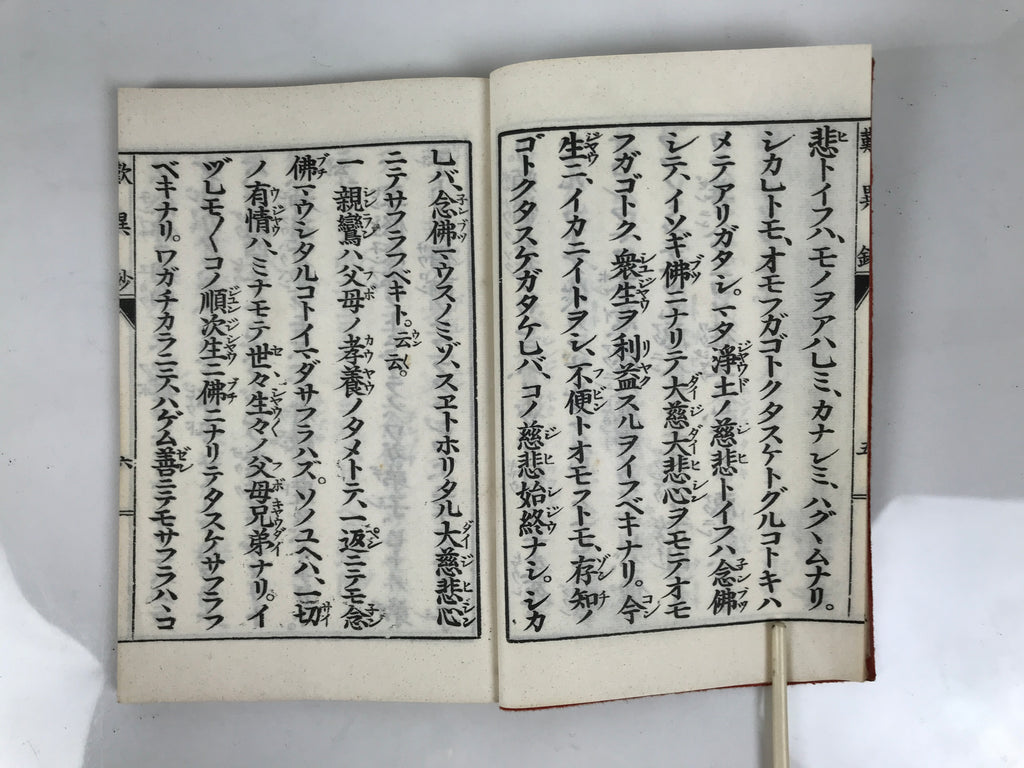 歎異鈔
五
悲トイフハ、モノヲアハレミ、カナシミ、ハグヽムナリ。
シカレトモ、オモフガゴトクタスケトグルコトキハ
メテアリガタシ。マタ淨土ノ慈悲トイフハ、念佛
シテ、イソギ佛ニナリテ大慈大悲心ヲモテオモ
フガゴトク、衆生ヲ利益スルヲイフベキナリ。今
生ニ、イカニイトヲシ、不便トオモフトモ、存知ノ
ゴトクタスケガタケレバ、コノ慈悲始終ナシ。シカ
レバ、念佛マウスノミゾ、スヱトホリタル大慈悲心
ニテサフラフベキト。云云。
一 親鸞ハ父母ノ孝養ノタメトテ、一返ニテモ念
佛マウシタルコトイマダサフラハズ。ソノユヘハ、一切
ノ有情ハ、ミナモテ世々生々ノ父母兄弟ナリ。イ
ヅレモ〳〵コノ順次生ニ佛ニナリテタスケサフラフ
ベキナリ。ワガチカラニテハゲム善ニテモサフラハヽコ
歎異鈔
六